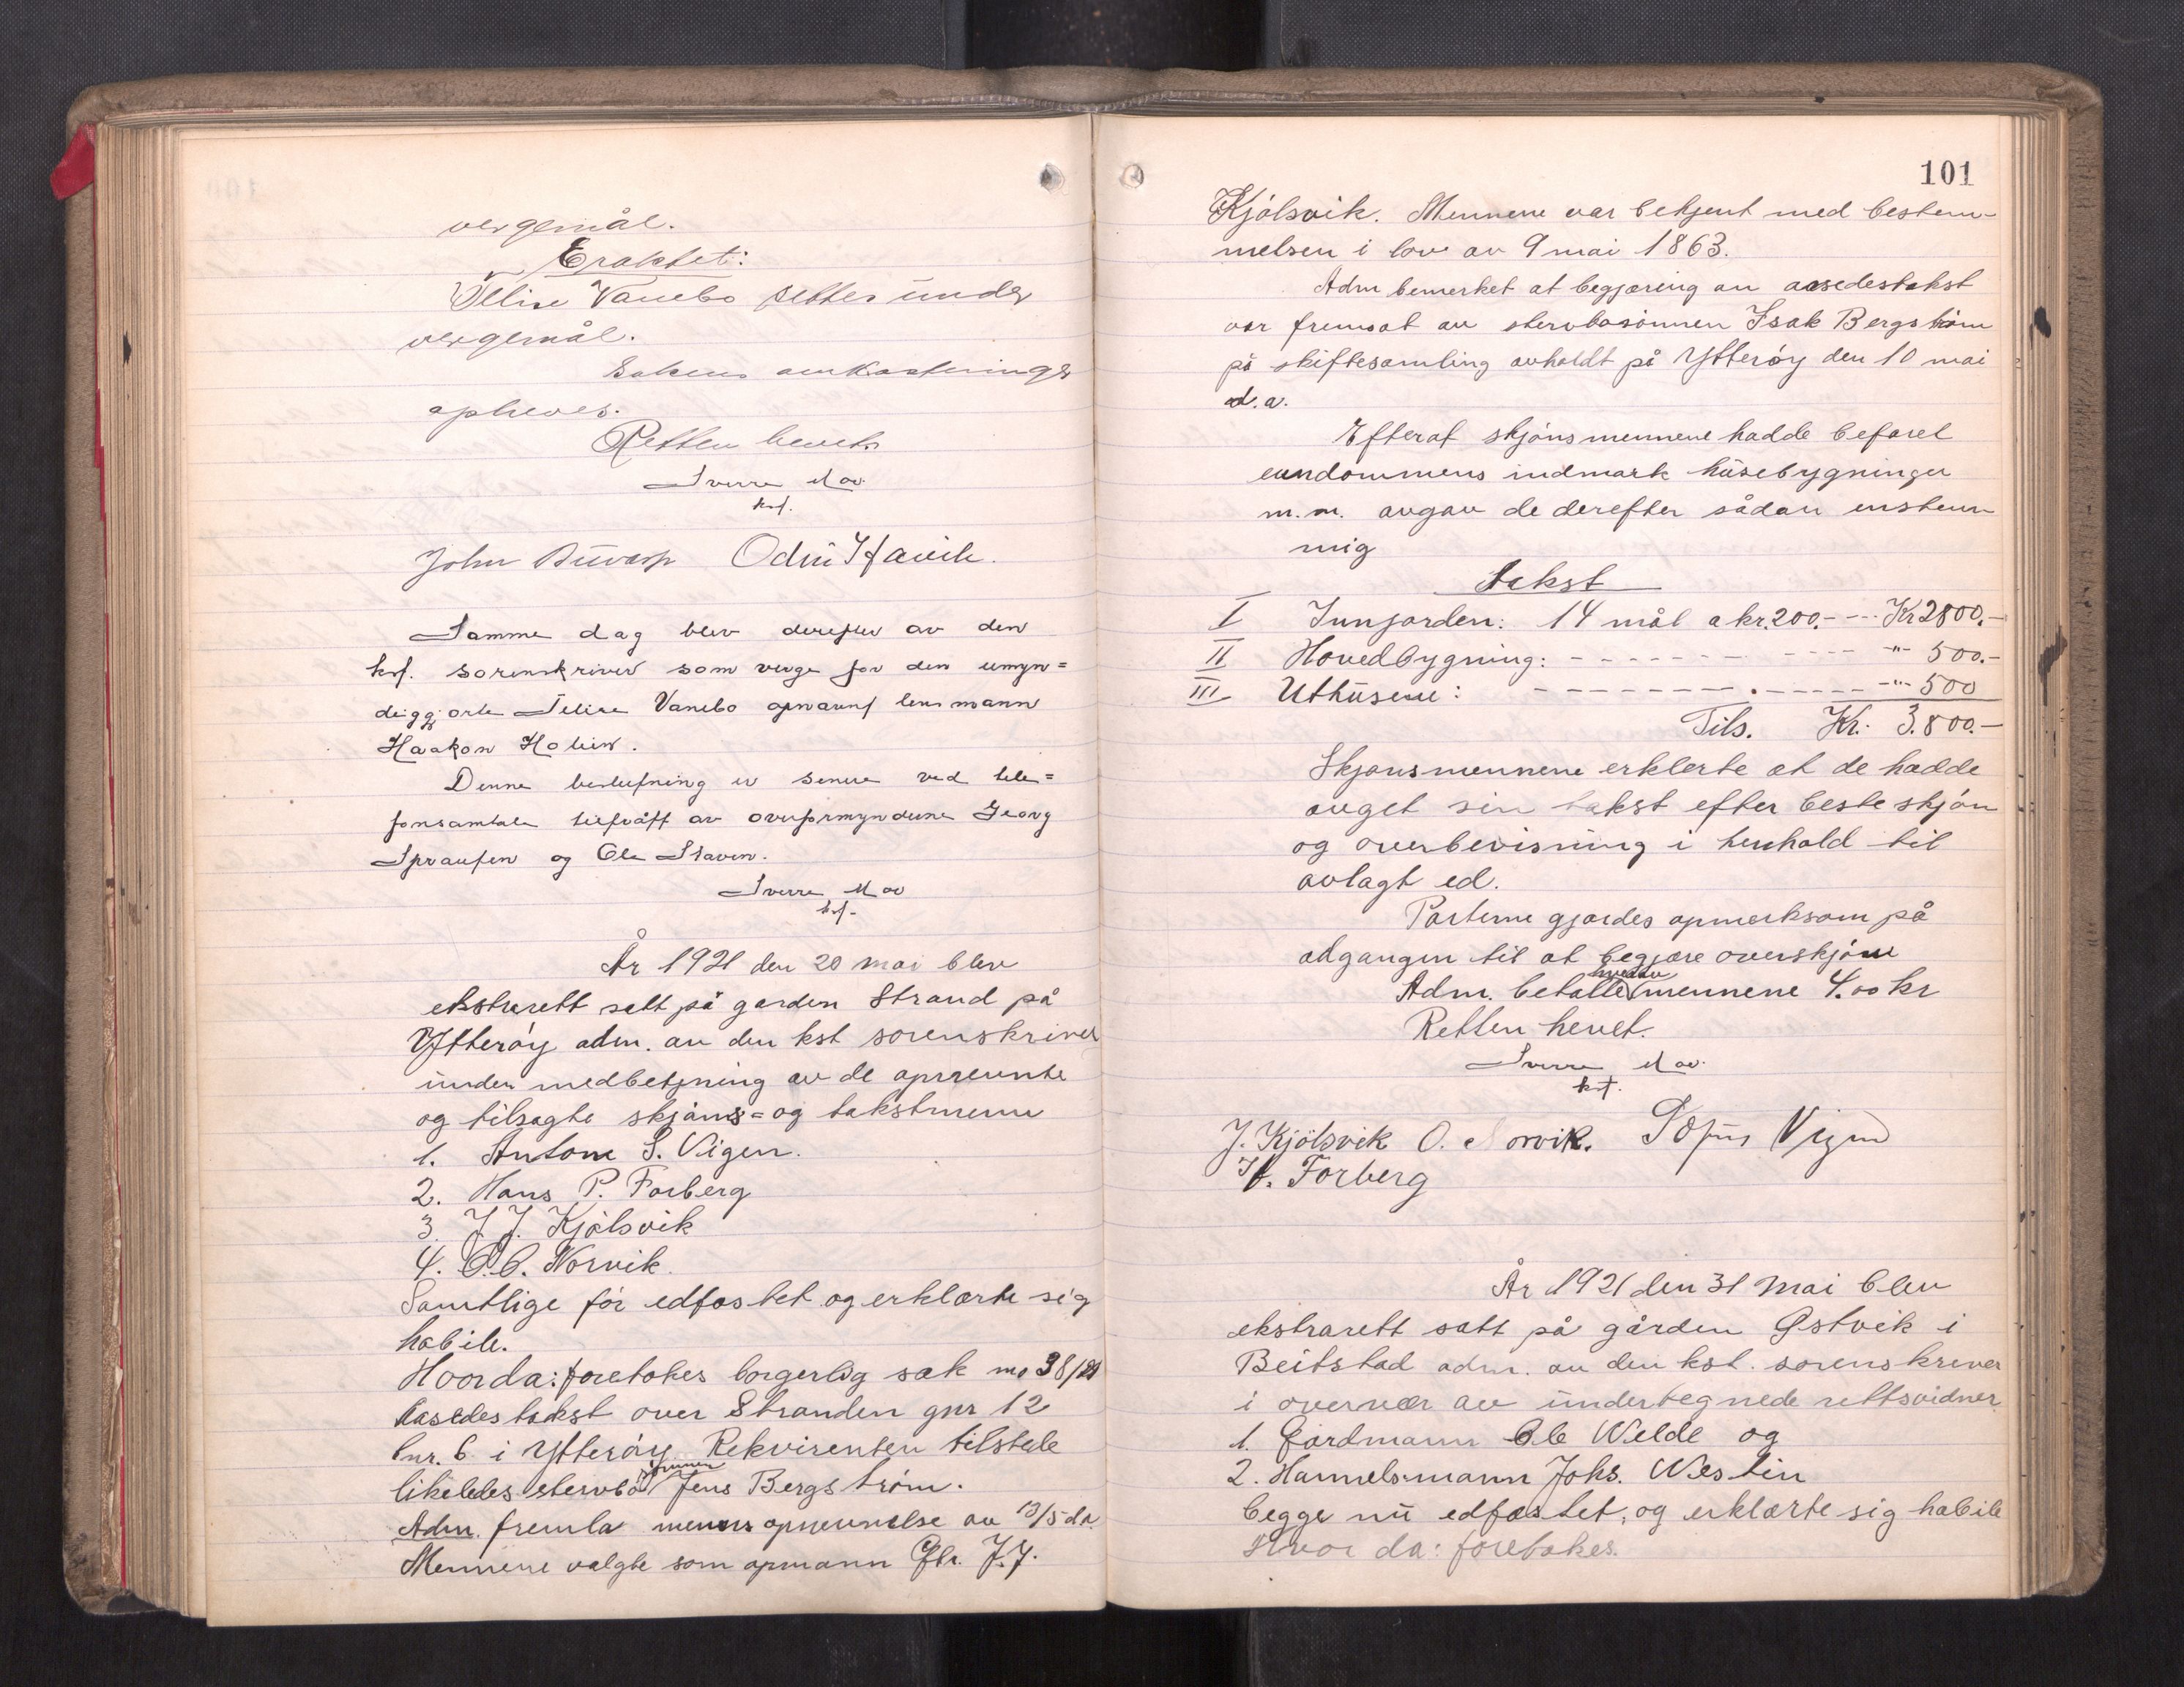 vergemål.
Eraktet:
Vanebo settes under
vergemål.
Sakens omkostninger
opheves.
Retten hevet.
Sverre Mov
kst.
John Odin Havik.
Samme dag blev derefter av den
kst. sorenskriver som verge for den umyn=
diggjorte Vanebo opnævnt lensmann
Haakon Holien.
Denne beslutning er senere ved tele=
fonsamtale tiltrått av overformynderne Georg
og Ole Staven.
Sverre Mov
kst.
År 1921 den 20 mai blev
ekstrarett satt på garden Strand på
Ytterøy adm. av den kst sorenskriver
under medbetjening av de opnevnte
og tilsagte skjøns= og takstmenn
1. Anton S. Vigen.
2. Hans P. Forberg
3. J. J. Kjølsvik
4. O. C. Norvik.
Samtlige før edfæstet og erklærte sig
habile.
Hvorda: foretokes borgerlig sak no 38/21
Aasedestakst over Stranden gnr 12
bnr. 6 i Ytterøy. Rekvirenten tilstede
likeledes stervbosønnen Jens Bergstrøm.
Adm. fremla menns opnevnelse av 13/5 d.a.
Mennene valgte som opmann Gbr. J. J.
101
Kjølsvik. Mennene var bekjent med bestem-
melsen i lov av 9 mai 1863.
Adm bemerket at begjæring om aasedestakst
var fremsat av stervbosønnen Isak Bergstrøm
på skiftesamling avholdt på Ytterøy den 10 mai
d.a.
Efterat skjønsmennene hadde befaret
eiendommens indmark húsebygninger
m.m. avgav de derefter sådan enstem
mig
Takst
I Innjorden: 14 mål a kr. 200.- --- Kr 2800.-
II Hovedbygning: - - - - - - - - - - " - 500.-
III Uthúsene: - - - - - - - . - - - - - " - 500
Tils. Kr. 3.800.-
Skjønsmennene erklerte at de hadde
avget sin takst efter beste skjøn
og overbevisning i henhold til
avlagt ed.
Parterne gjordes opmerksom på
adgangen til at begjære overskjøn
Adm. betalte hverav mennene 4.00 kr
Retten hevet.
Sverre Mov.
kst.
J. Kjölsvik O. Norvik. Vigen
H. Forberg
År 1921 den 31 mai blev
ekstrarett satt på gården Østvik i
Beitstad adm. av den kst. sorenskriver
i overvær av undertegnede rettsvidner
1. Gardmann Ole Welde og
2. Hannelsmann Johs. Westin
begge nú edfæstet, og erklærte sig habile
Hvor da: foretokes.